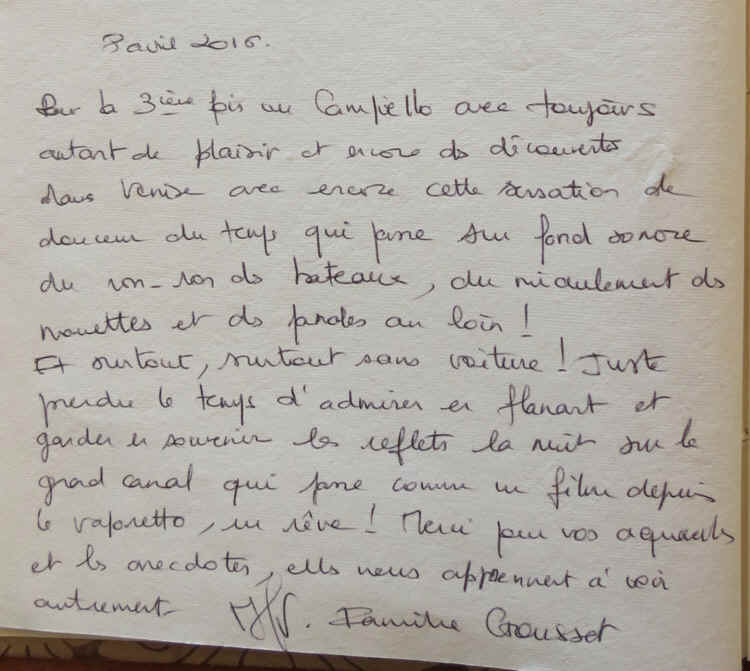 avril 2016.
Pour la 3ième fois au Campiello avec toujours
autant de plaisir et encore des découvertes
dans Venise avec encore cette sensation de
douceur du temps qui passe sur fond sonore
du ron-ron des bateaux, du miaulement des
mouettes et des paroles au loin !
Et surtout, surtout sans voiture ! Juste
prendre le temps d'admirer en flanant et
garder en souvenir les reflets la nuit sur le
grand canal qui passe comme un film depuis
le vaporetto, un rêve ! Merci pour vos aquarells
et les anecdotes, elles nous apprennent à voir
autrement Famille Grousset